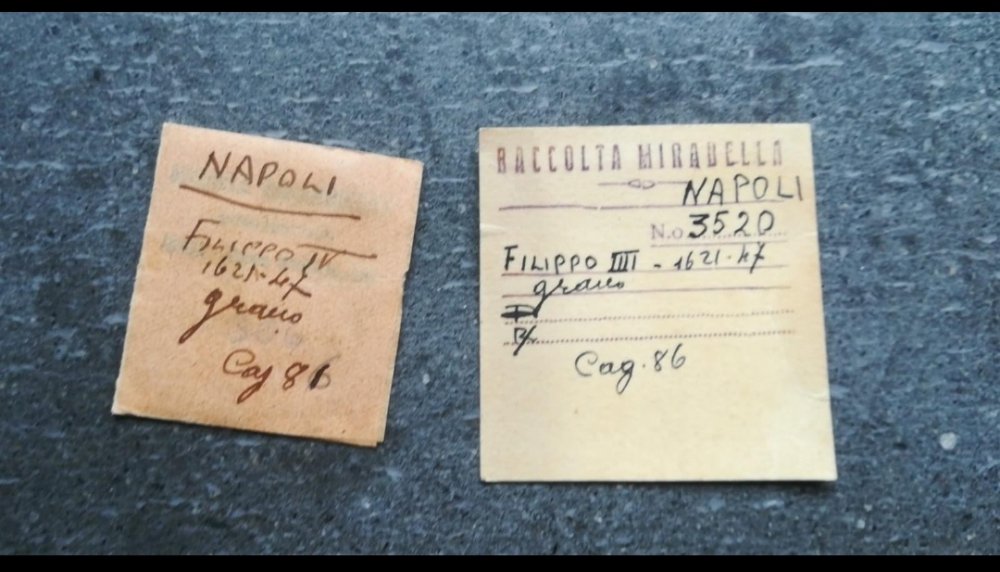 NAPOLI
FILIPPO IV
1621-47
grano
Cag 86
RACCOLTA MIRABELLA
NAPOLI
N.o 3520
FILIPPO IIII - 1621-47
grano
Cag. 86